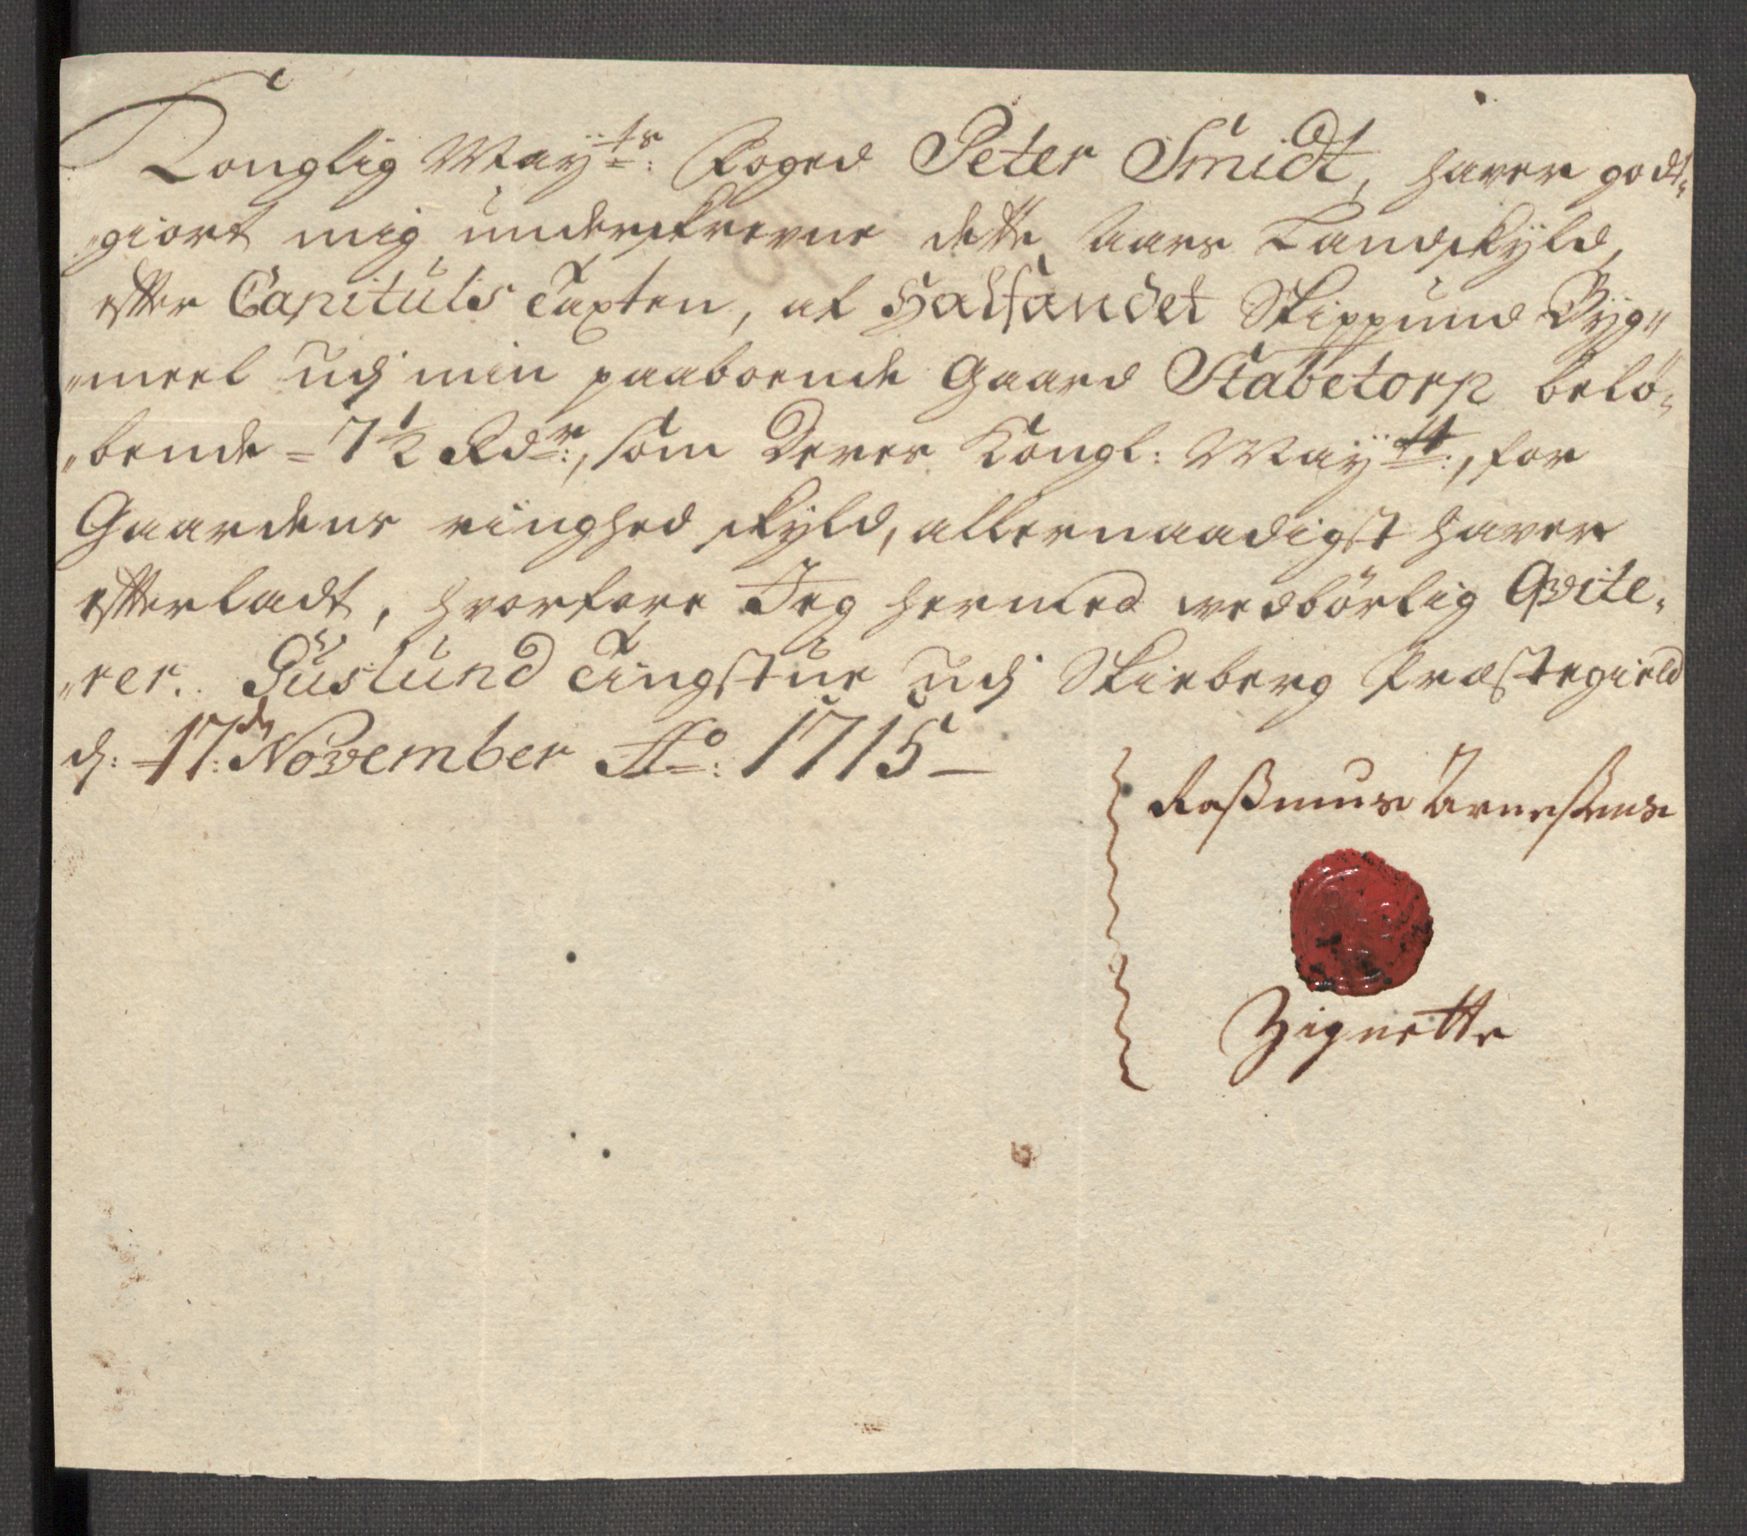 Konglig Maÿts: Foged Peter Smidt, haver godt„
„giort mig underskrevne dette aars Landskÿld,
efter Capituls Taxten, af Halfandet Skippund Bÿg„
„meel udj min paaboende Gaard Stabetorp belö„
„bende = 7½ Rdr:, som Deres Kongl: Maÿtt:, for
Gaardens ringhed skÿld, allernaadigst haver
efterladt, hvorfore Jeg hermed vedbörlig Qvite„
„rer. Guslund Tingstue udj Skieberg Præstegield
d: 17:de November Ao: 1715 –
Rassmus Arnessens
Zignette